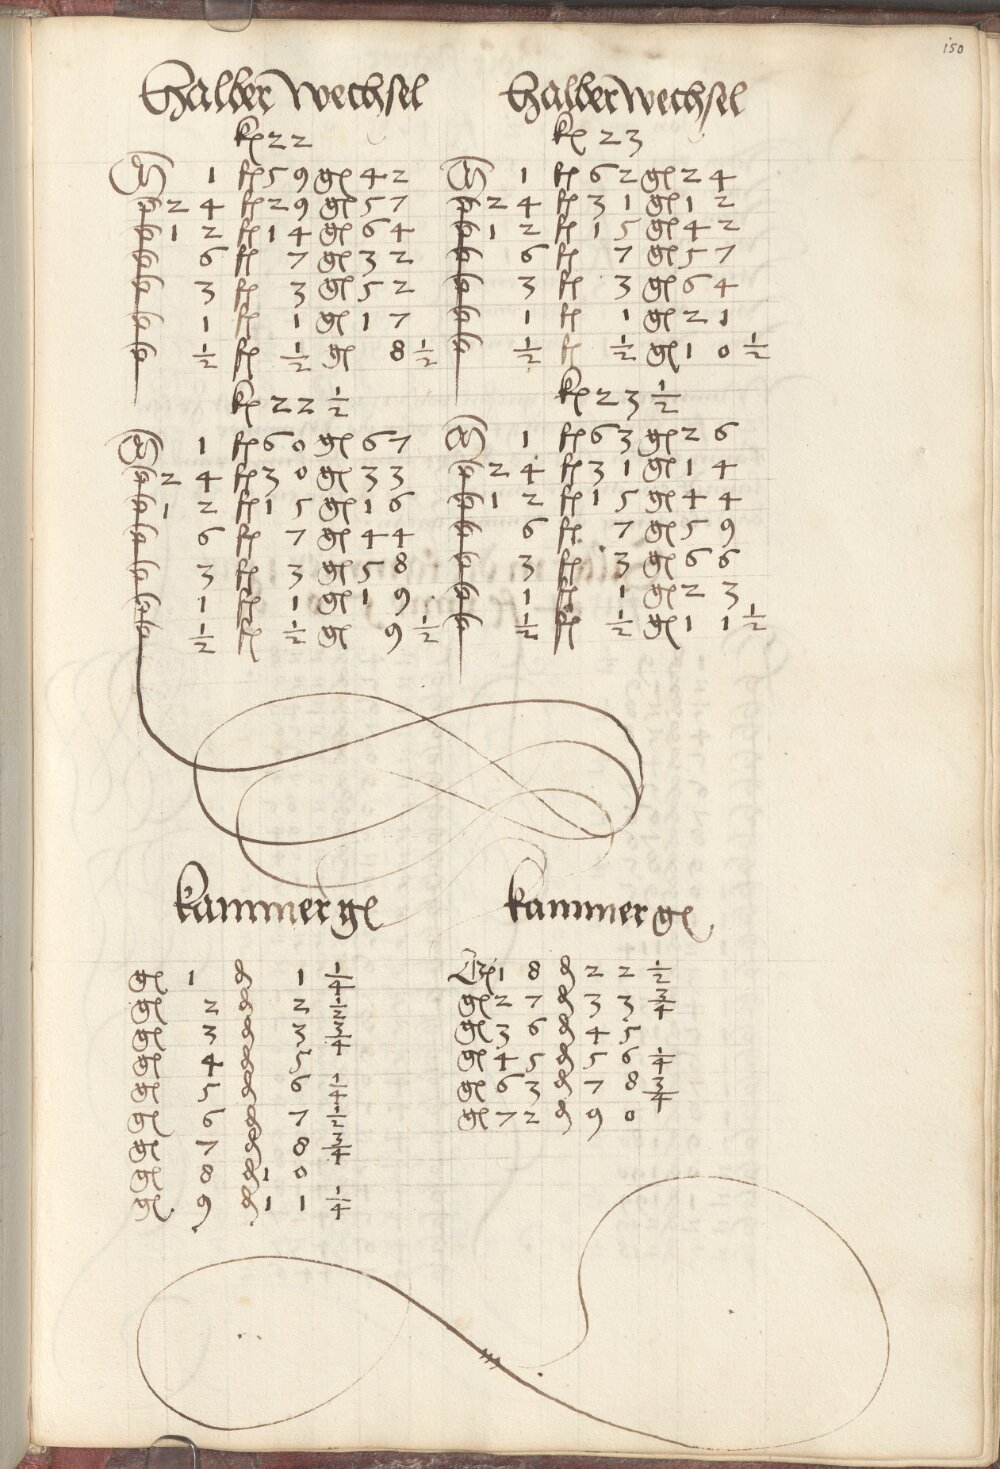 150
Halber wechsel
kr 22
M 1 fl 59 gr 42
p 24 fl 29 gr 57
p 12 fl 14 gr 64
p 6 fl 7 gr 32
p 3 fl 3 gr 52
p 1 fl 1 gr 17
p ½ fl ½ gr 8 ½
kr 22 ½
M 1 fl 60 gr 67
p 24 fl 30 gr 33
p 12 fl 15 gr 16
p 6 fl 7 gr 44
p 3 fl 3 gr 58
p 1 fl 1 gr 19
p ½ fl ½ gr 9 ½
Halber wechsel
kr 23
M 1 fl 62 gr 24
p 24 fl 31 gr 12
p 12 fl 15 gr 42
p 6 fl 7 gr 57
p 3 fl 3 gr 64
p 1 fl 1 gr 21
p ½ fl ½ gr 10 ½
kr 23 ½
M 1 fl 63 gr 26
p 24 fl 31 gr 14
p 12 fl 15 gr 44
p 6 fl 7 gr 59
p 3 fl 3 gr 66
p 1 fl 1 gr 23
p ½ fl ½ gr 11 ½
kammer gr
gr 1 d 1 ¼
gr 2 d 2 ½
gr 3 d 3 ¾
gr 4 d 5
gr 5 d 6 ¼
gr 6 d 7 ½
gr 7 d 8 ¾
gr 8 d 10
gr 9 d 11 ¼
kammer gr
Gr 18 d 22 ½
gr 27 d 33 ¾
gr 36 d 45
gr 45 d 56 ¼
gr 63 d 78 ¾
gr 72 d 90